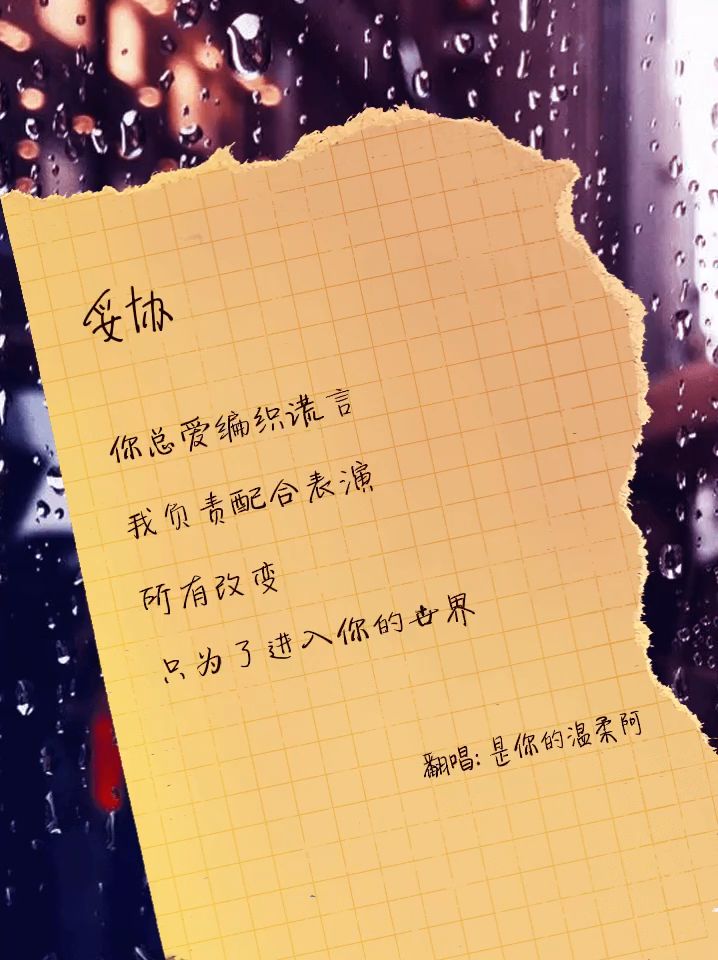 妥协
你总爱编织谎言
我负责配合表演
所有改变
只为了进入你的世界
翻唱:是你的温柔阿